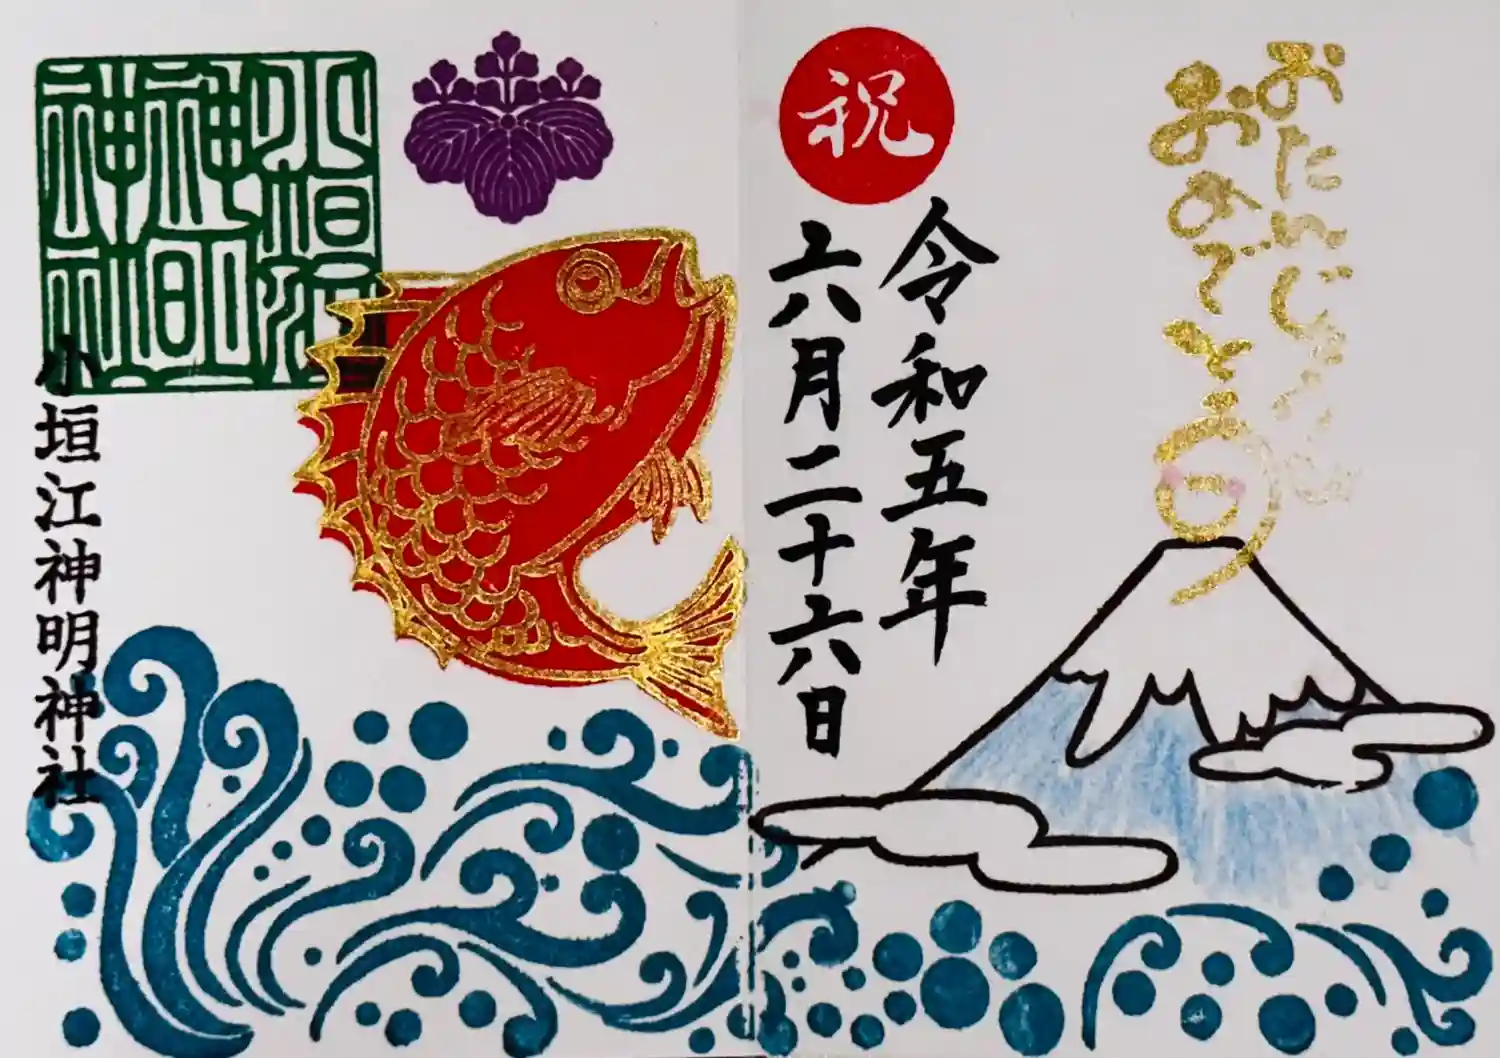 おたんじょうび
おめでとう
祝
令和五年
六月二十六日
小垣江神明神社